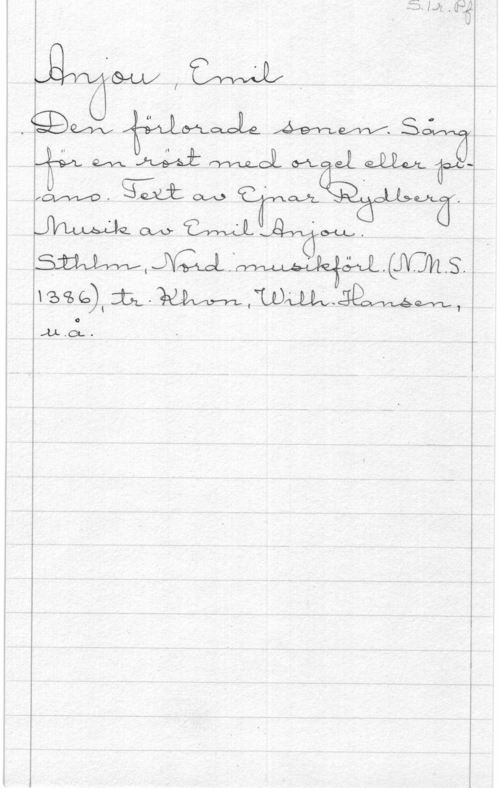 S.1r. Pf
Anjou, Emil
Den förlorade sonen. Sång
för en röst med orgel eller pi-
ano. Text av Ejnar Rydberg.
Musik av Emil Anjou.
Sthlm, Nord. musikförl. (N.M.S.
1386), tr. Khvn, Wilh. Hansen,
u.å.